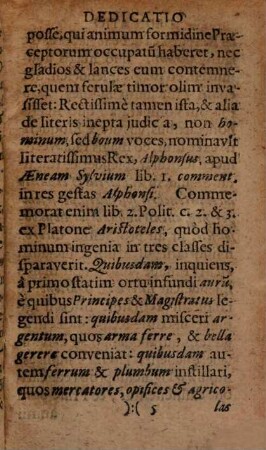 DEDICATIO
posse, qui animum formidine Præ-
ceptorum occupatũ haberet, nec
gladios & lances eum contemne-
re, quem ferulæ timor olim inva-
sisset: Rectissimè tamen ista, & alia
de literis inepta judicia, non ho-
minum, sed boum voces, nominavit
literatissimus Rex, Alphonsus, apud
Æneam Sylvium lib. 1. comment.
in res gestas Alphonsi. Comme-
morat enim lib. 2. Polit. c. 2. & 3.
ex Platone Aristoteles, quòd ho-
minum ingenia in tres classes di-
sparaverit. Quibusdam, inquiens,
à primo statim ortu infundi aurũ,
è quibus Principes & Magistratus le-
gendi sint: quibusdam misceri ar-
gentum, quos arma ferre, & bella
gerere conveniat: quibusdam au-
tem ferrum & plumbum instillari,
quos mercatores, opifices & agrico-
):( 5 las